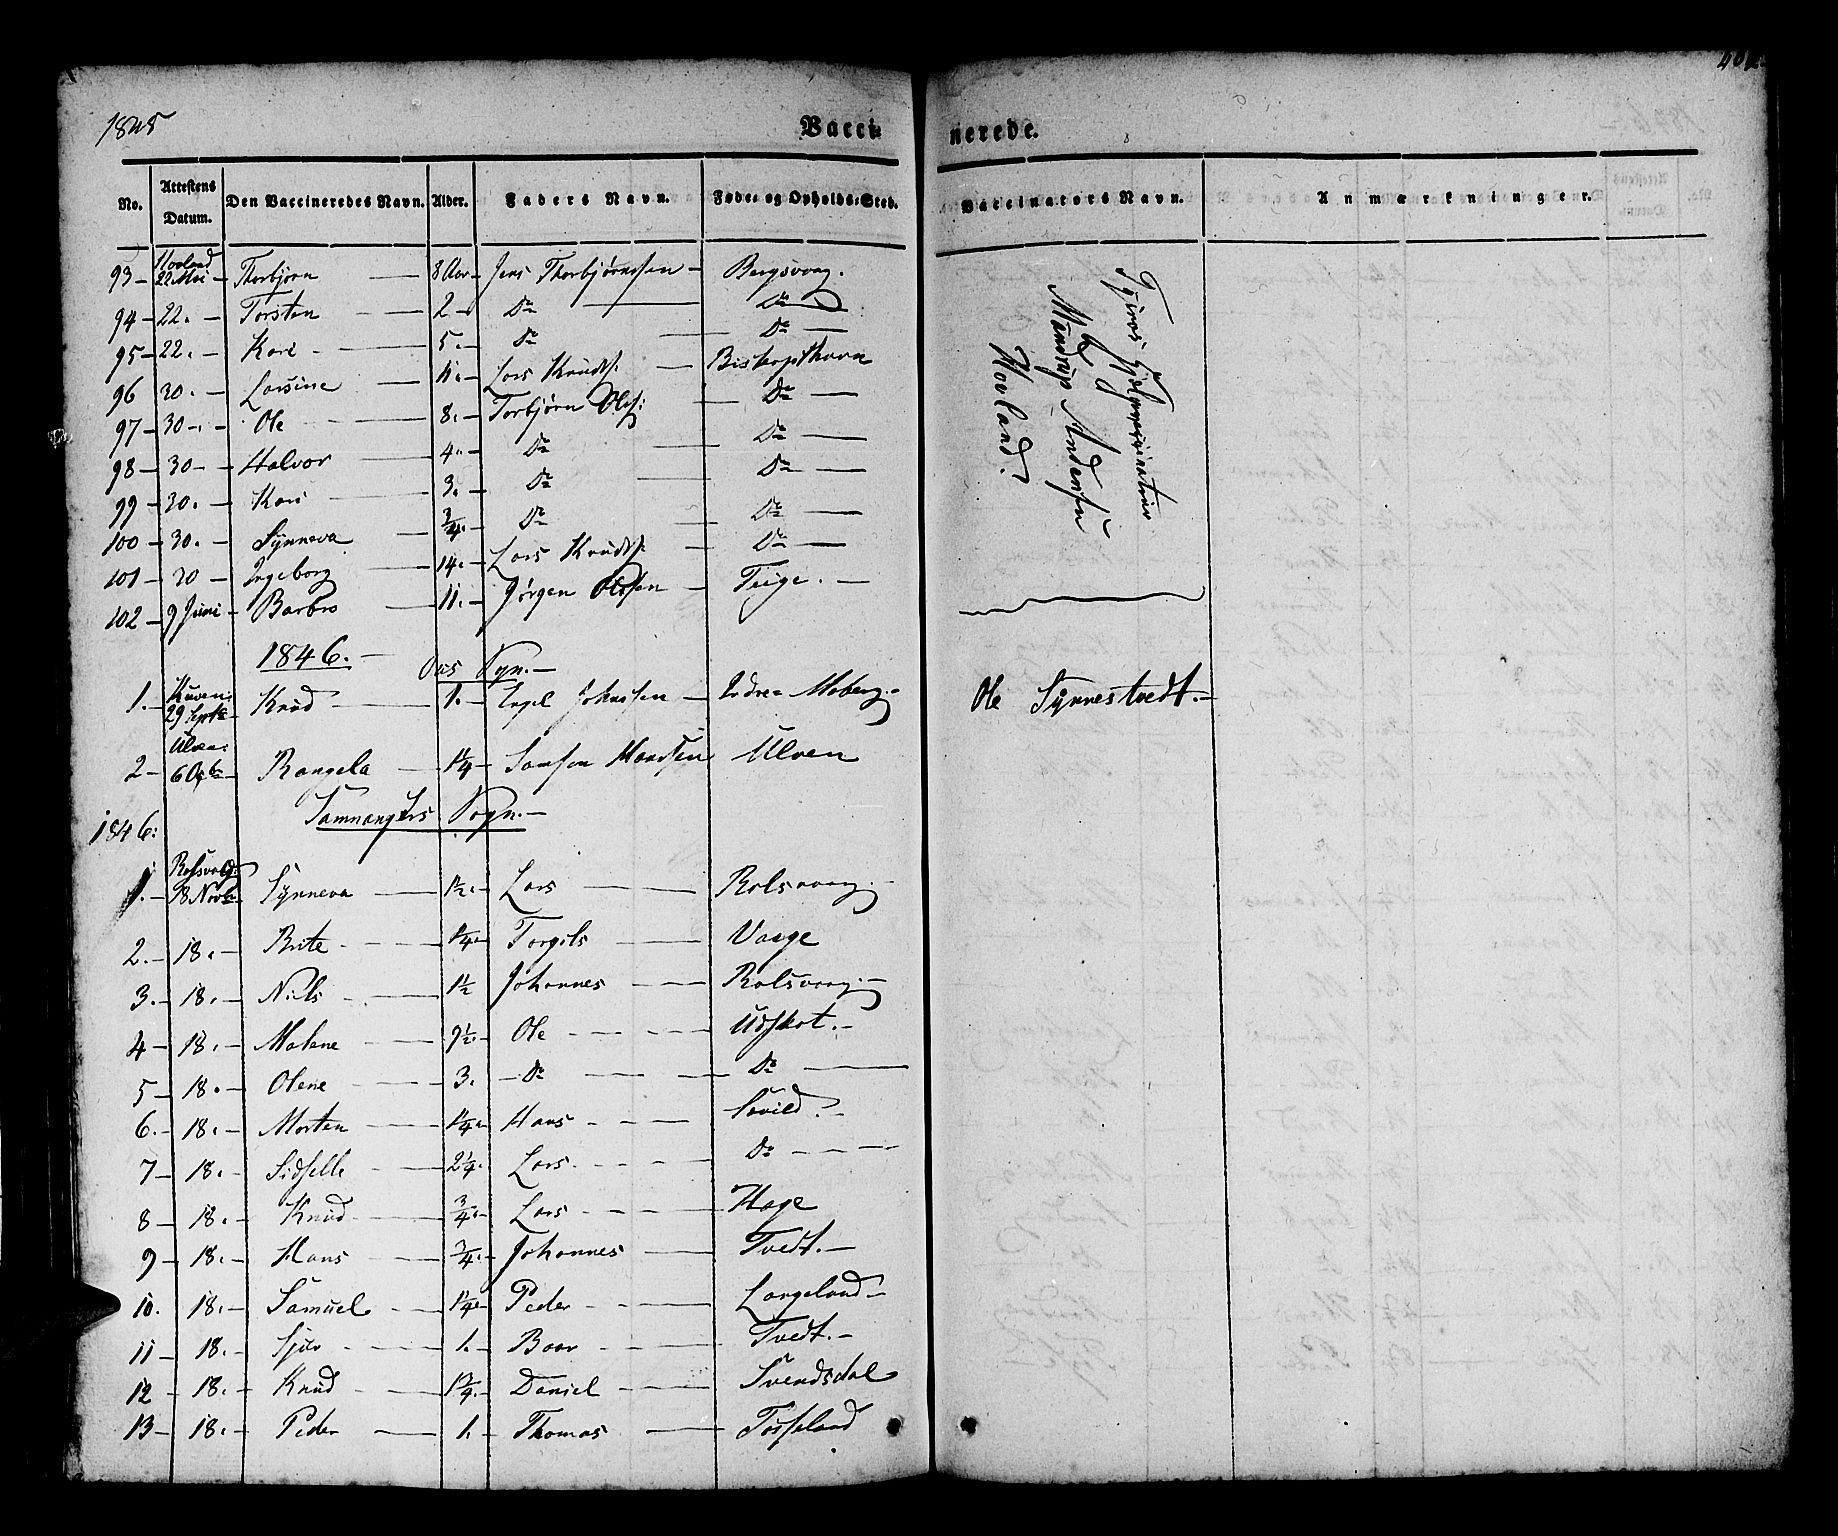 1845
Vacci- nerede.
No. Attestens Datum. Den Vaccineredes Navn. Alder. Faders Navn. Føde- og Opholds-Sted. Vaccinators Navn. Anmærkninger.
93 - Hovland 22 Mai - Thorbjørn — 8 Aar - Jens Thorbjørnssen - Bergsvaag.
94 - 22. - Torsten — 2 - Do — Do
95 - 22. - Kari - — 5. - Do — Do —
96 30. - Larsine — 11. - Lars Knuds: — Biskopshavn
97 - 30 - . - Ole — 8. - Torbjørn Ols: — Do —
98 - 30 - Halvor — 4. - Do Do —
99 30. - Kari — 3. - Do — Do —
100 - 30. - Synneva — 3/4. - Do — Do —
101 - 30 - Ingeborg — 14. - Lars Knuds: — Do —
102 - 9 Juni - Barbro — 11. - Jørgen Olssen — Teige. —
Mandrup Andersen
Hovland.
1846. —
Oos Sgn. —
1. - Kuven 29 Septbr - Knud — 1. - Engel Johnssen — Indre Moberg. - Ole Synnestvedt. —
2 - Ulven 6 Octbr - Rangela — 1 1/4 - Samson Hansen Ulven
Samnangers Sogn. —
1846:
1. - Rolsvaag 18 Novbr - Synneva — 1 1/2. - Lars — Rolsvaag. -
2. - 18. - Brite — 1 1/4. - Torgils — Vaage
3. - 18. - Niels — 1 1/2 Johannes — Rolsvaag. -
4 - 18. - Malene — 9 1/2. - Ole — Udskot. -
5 - 18. - Olene — 3. - Do — Do —
6. - 18. - Morten — 1 1/4. - Hans — Sævild. -
7 - 18. - Sidselle — 2 1/4. - Lars. — Do —
8 - 18. - Knud — 3/4. - Lars — Hage
9 - 18. - Hans — 3/4. - Johannes — Tvedt. —
10. 18. - Samuel — 1 1/4. - Peder — Langeland -
11 - 18. - Sjur — 1. - Baar — Tvedt. -
12 - 18. - Knud — 1 3/4. - Daniel — Svendsdal
13 - 18. - Peder — 1. - Thomas — Tosseland